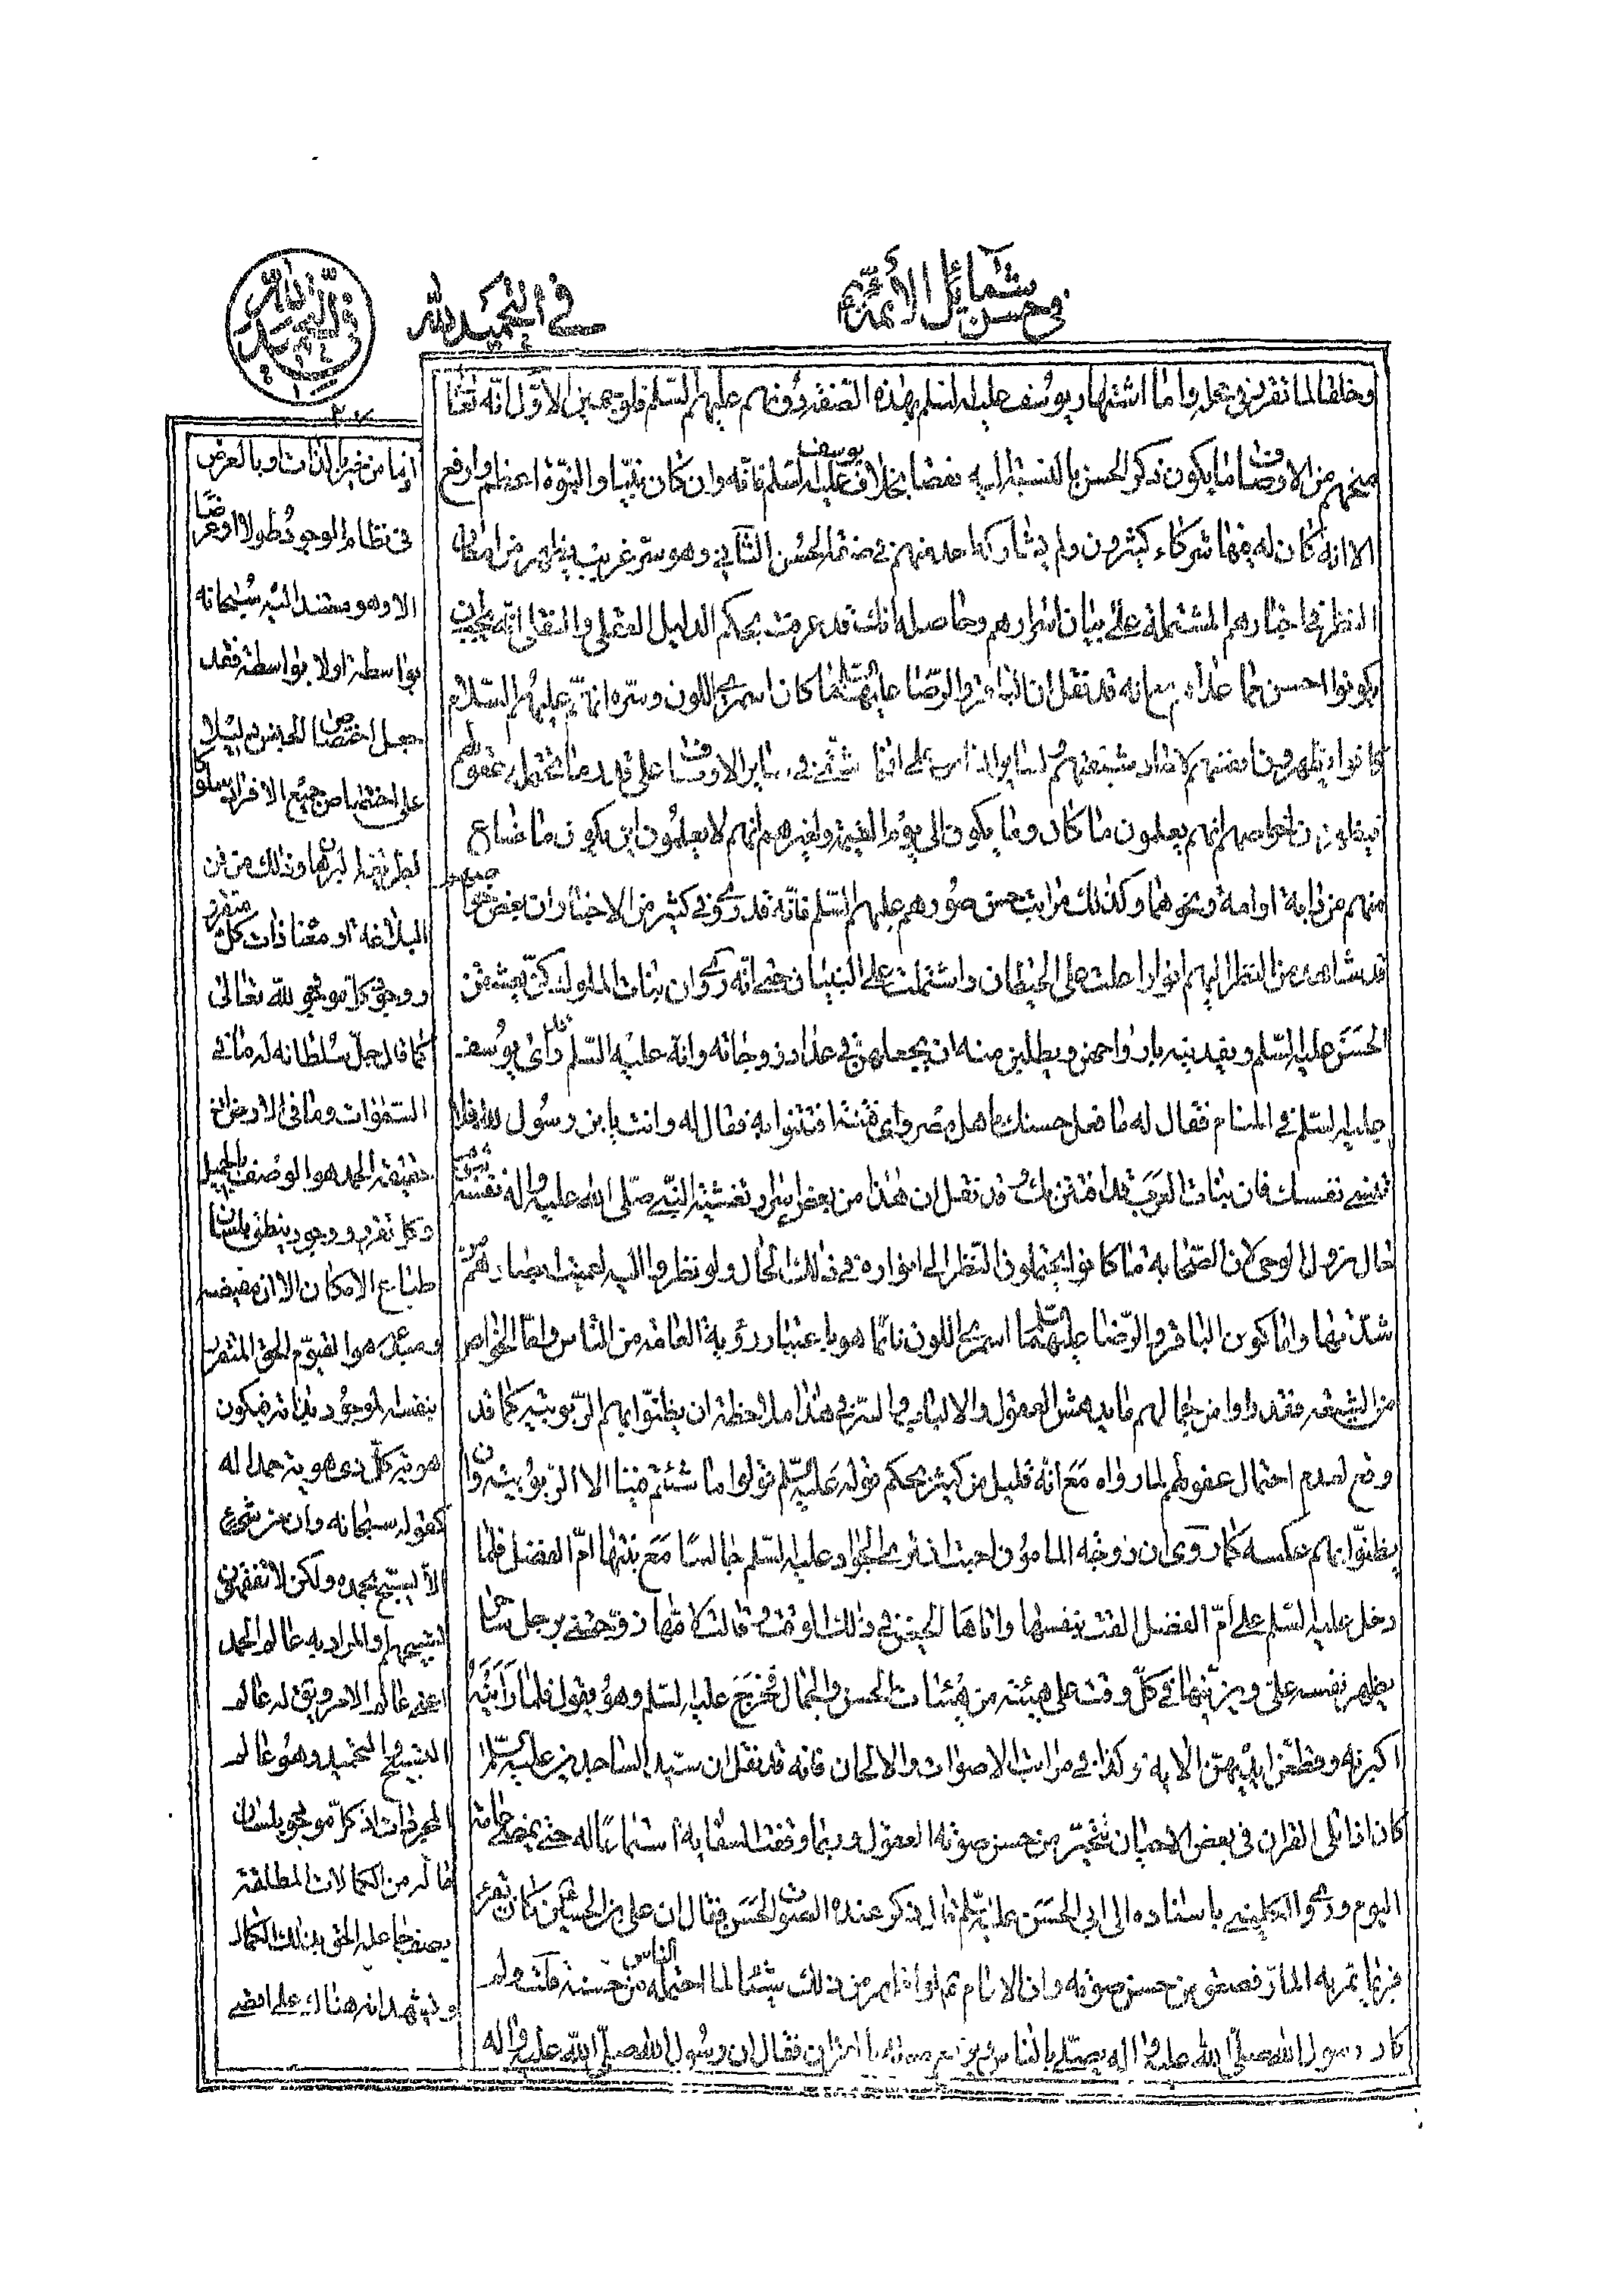 في حسن شمائل الأئمة
في التحميد لله
وخلقا لما تقرر في محله واما اشتهار يوسف عليه السلم بهذه الصفة دونهم عليهم السلم فلوجهين الاول انه تعا
منحهم من الاوصاف ما يكون ذكر الحسن بالنسبة اليه نقصا بخلاف يوسف عليه السلم فانه وان كان نبيا والنبوة اعظم وارفع
الا انه كان له فيها شركاء كثيرون ولم يشاركه احد منهم في صفة الحسن الثاني وهو سر غريب يظهر من امعان
النظر في اخبارهم المشتملة على بيان اسرارهم وحاصله انك قد عرفت بحكم الدليل العقلي والنقلي انه يجب ان
يكونوا احسن مما عداهم مع انه قد نقل ان الباقر والرضا عليهما السلم كان اسمر اللون وسره انهم عليهم السلام
كانوا يظهرون لشيعتهم ولساير الناس على انحا شتى في ساير الاوصاف على قدر ما تحتمله عقولهم
فيظهرون لخواصهم انهم يعلمون ما كان وما يكون الى يوم القيمة ولغيرهم انهم لا يعلمون اين يكون ما ضاع
منهم من دابة او امة ونحوهما وكذلك مراتب حسن صورهم عليهم السلم فانه قد روى في كثير من الاخبار ان بعض خواصهم
قد شاهد من النظر اليهم انوارا علت على الحيطان واشتملت على البنيان حتى انه روى ان بنات الملوك كن يعشقن
الحسن عليه السلم ويفدينه بارواحهن ويطلبن منه ان يجعلهن في عداد زوجاته وانه عليه السلم راى يوسف
عليه السلم في المنام فقال له ما فعل حسنك باهل مصر واى فتنة افتتنوا به فقال له وانت يا بن رسول الله فلا
تنسى نفسك فان بنات العرب قد افتتن بك وقد نقل ان هذا من بعض اسرار تغشية النبي صلى الله عليه واله نفسه
حال نزول الوحى لان الصحابة ما كانوا يحتملون النظر الى انواره في ذلك الحال ولو نظروا اليه لعميت ابصارهم من
شدتها واما كون الباقر والرضا عليهما السلم اسمرى اللون فانما هو باعتبار رؤية العامة من الناس واما الخواص
من الشيعة فقد راوا من جمالهم ما يدهش العقول والالباب والسر في هذا ملاحظة ان يظنوا بهم الربوبية كما قد
وقع لعدم احتمال عقولهم لما رواه مع انه قليل من كثير بحكم قوله عليه السلم قولوا ما شئتم فينا الا الربوبية وان
يظنوا بهم عكسه كما روى ان زوجة المامون احبت ان ترى الجواد عليه السلم جالسا مع بنتها ام الفضل فلما
دخل عليه السلم على ام الفضل الفت بنفسها واتاها الحيض في ذلك الوقت وقالت لامها زوجتني برجل ساحر
يظهر نفسه على ويزينها في كل وقت على هيئة من هيئات الحسن والجمال فخرج عليه السلم وهو يقول فلما راينه
اكبرنه وقطعن ايديهن الاية وكذا في مراتب الاصوات والالحان فانه قد نقل ان سيد الساجدين عليه السلم
كان اذا تلى القران في بعض الاحيان تتحير من حسن صوته العقول وربما وقفت السقاية استماعا له حتى يمضي عامة
اليوم وروى الكليني باسناده الى ابي الحسن عليه السلم قال ذكر عنده الصوت الحسن فقال ان على بن الحسين كان يقرء
فربما يمر به المار فصعق من حسن صوته وان الامام لو اظهر من ذلك شيئا لما احتمله الناس من حسنه قلت ولم
كان رسول الله صلى الله عليه واله يصلى بالناس ويرفع صوته بالقران فقال ان رسول الله صلى الله عليه واله
في التحميد لله
اذ ما من خير بالذات او بالعرض
في نظام الوجود طولا او عرضا
الا وهو مستند اليه سبحانه
بواسطة او لا بواسطة فقد
جعل اختصاص الجنس دليلا
على اختصاص جميع الافراد سلوكا
لطريقة البرهان وذلك من فن
البلاغة او معنا ذات كل متقرر
ووجود كل موجود لله تعالى
كما قال جل سلطانه له ما في
السموات وما في الارض اذ
حقيقة الحمد هو الوصف بالجميل
وكل تقرر ووجود ينطق بلسان
طباع الامكان الا ان مفيضه
ومبدعه هو القيوم الحق المتقرر
بنفسه الموجود بذاته فيكون
هوية كل ذى هوية حمدا له
كقوله سبحانه وان من شيء
الا يسبح بحمده ولكن لا تفقهون
تسبيحهم او المراد به عالم الحمد
اعنى عالم الامر ويق له عالم
التسبيح والتحميد وهو عالم
المجردات اذ كل موجود بلسان
ما له من الكمالات المطلقة
يصف جاعله الحق بذلك الكمال
ويشهد انه هناك على اقصى